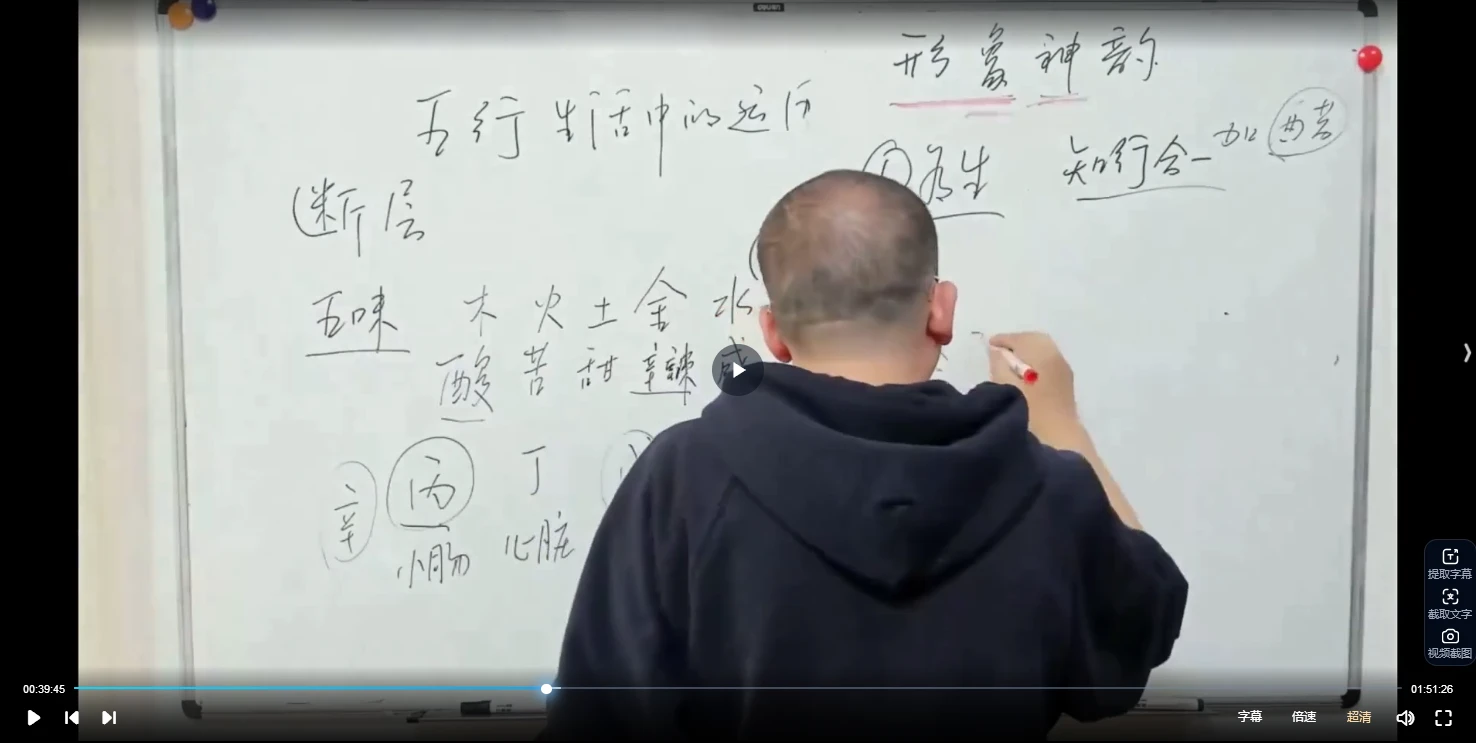 形象神韵
五行生活中的运历
①养生 知行合一 加
断层
五味 木火土金水
酸苦甜辣咸
辛 丙 丁
小肠 心脏
提取字幕
截取文字
视频截图
00:39:45
01:51:26
字幕 倍速 超清